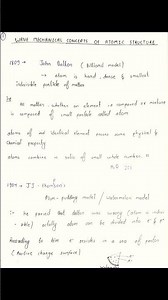 WAVE MECHANICAL CONCEPTS OF ATOMIC STRUCTURE
1809 → John Dalton (Billiard model)
→ atom is hard, dense & smallest
indivisible particle of matter
all matter, whether an element, compound or mixture
is composed of small particles called atoms
atoms of an identical element same physical &
chemical property
atoms combines in ratio of small whole number
1904 → J.J. Thomson
Plum-pudding model / Watermelon model
:- he proved that dalton was wrong (atom is indivi-
sible) actually atom can be divided into e⁻ & p⁺
According to him e⁻ resides in a sea of proton
(Positive charge surface)